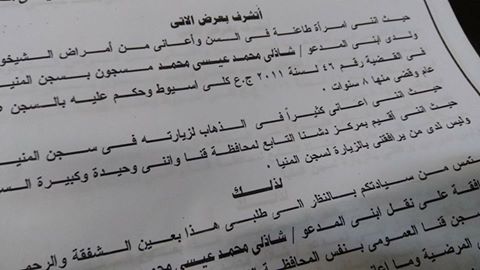 أتشرف بعرض الاتى
حيث اننى امرأة طاعنة فى السن وأعانى من أمراض الشيخو
ولدى ابنى المدعو / شاذلى محمد عيسى محمد مسجون بسجن المنيا
فى القضية رقم ٤٦ لسنة ٢٠١١ ج.ع كلى اسيوط وحكم عليه بالسجن
عام وقضى منها ٨ سنوات .
حيث اننى اعانى كثيراً فى الذهاب لزيارته فى سجن المنيا
حيث اننى أقيم بمركز دشنا التابع لمحافظة قنا واننى وحيدة وكبيرة الس
وليس لدى من يرافقنى بالزيارة لسجن المنيا .
لذلك
تمس من سيادتكم بالنظر الى طلبى هذا بعين الشفقة والرحم
فقة على نقل ابنى المدعو / شاذلى محمد عيسى مح
سجن قنا العمومى بنفس المحافظة
المرضية